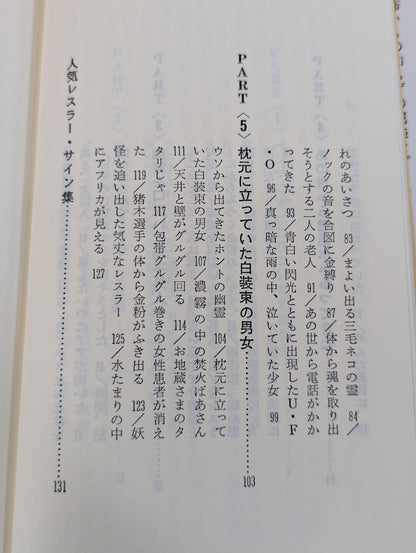 れのあいさつ 83/まよい出る三毛ネコの霊 84/
ノックの音を合図に金縛り 87/体から魂を取り出
そうとする二人の老人 91/あの世から電話がかか
ってきた 93/青白い閃光とともに出現したU・F
・O 96/真っ暗な雨の中、泣いていた少女 99
PART〈5〉枕元に立っていた白装束の男女…………103
ウソから出てきたホントの幽霊 104/枕元に立って
いた白装束の男女 107/濃霧の中の焚火ばあさん
111/天井と壁がグルグル回る 114/お地蔵さまのタ
タリじゃ 117/包帯グルグル巻きの女性患者が消え
た 119/猪木選手の体から金粉がふき出る 123/妖
怪を追い出した気丈なレスラー 125/水たまりの中
にアフリカが見える 127
人気レスラー・サイン集…………131